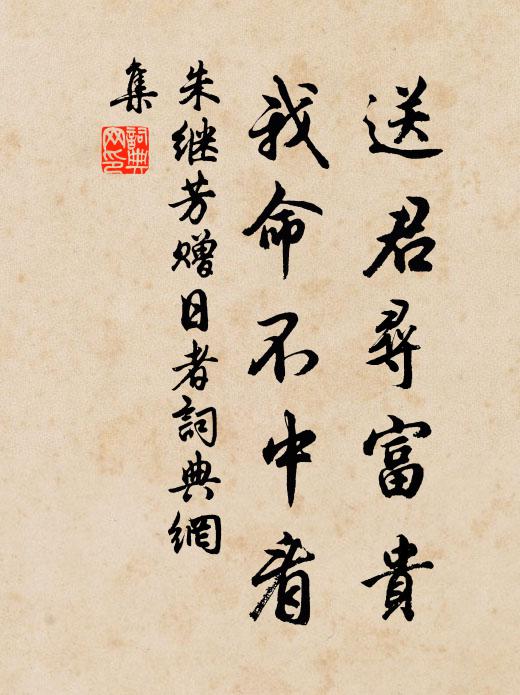 送君尋富貴
我命不中看
朱继芳赠日者詞典網
集
詞典
网印